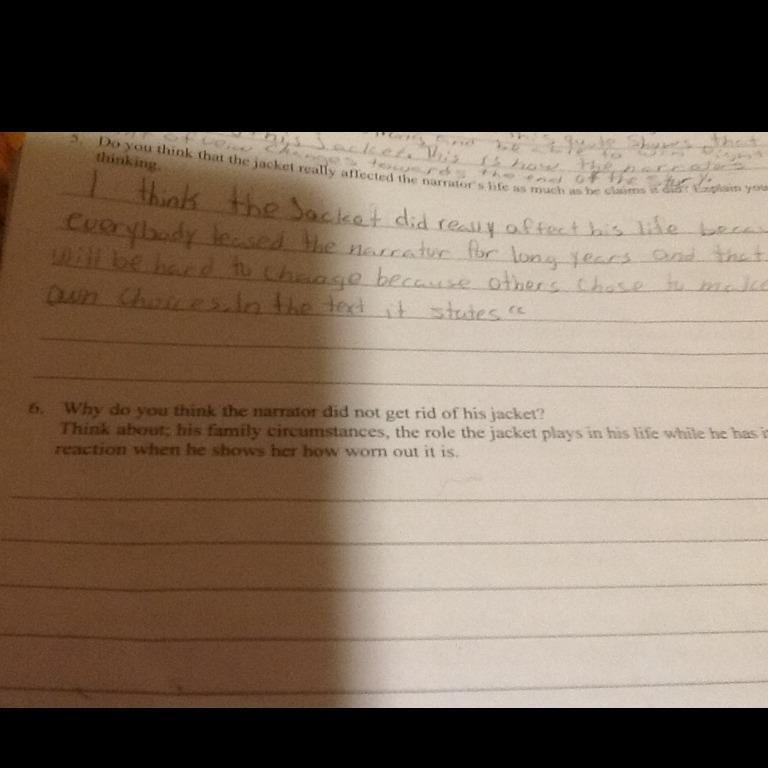 this quote shows that
of his Jacket. This is how the narrator
changes towards the end of the story.
5. Do you think that the jacket really affected the narrator's life as much as he claims it did? Explain you
thinking.
I think the Jacket did really affect his life becau
everybody teased the narrator for long years and that
will be hard to change because others chose to make
own choices. In the text it states "
6. Why do you think the narrator did not get rid of his jacket?
Think about; his family circumstances, the role the jacket plays in his life while he has i
reaction when he shows her how worn out it is.